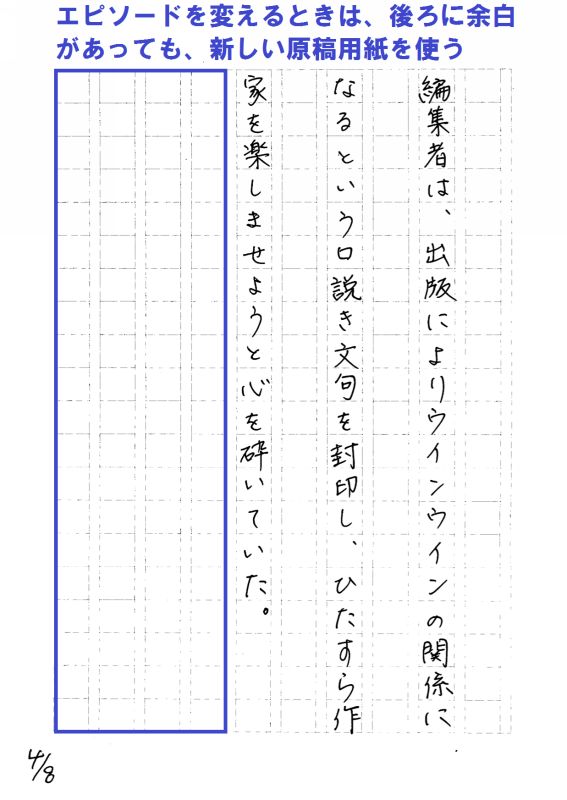 エピソードを変えるときは、後ろに余白
があっても、新しい原稿用紙を使う
編集者は、出版によりウインウインの関係に
なるという口説き文句を封印し、ひたすら作
家を楽しませようと心を砕いていた。
4/8